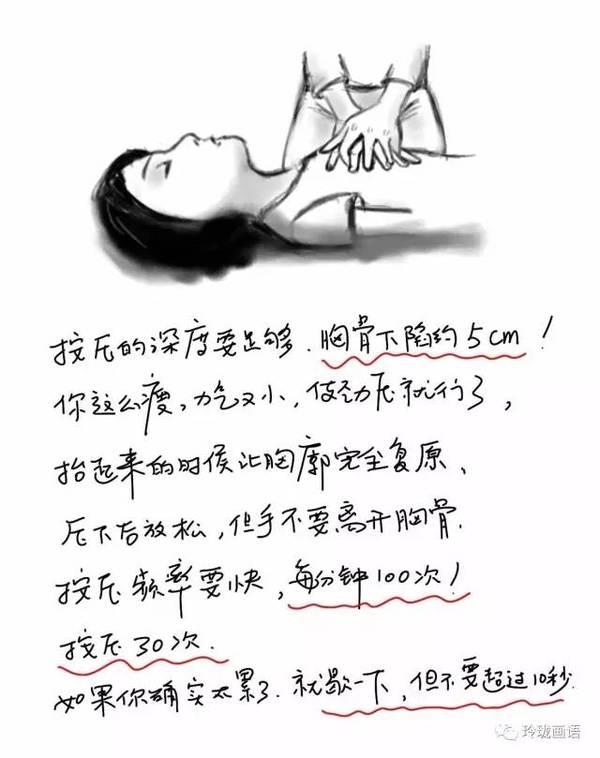 按压的深度要足够、胸骨下陷约5cm！
你这么瘦，力气又小，使劲压就行了，
抬起来的时候让胸廓完全复原、
压下后放松，但手不要离开胸骨.
按压频率要快，每份钟100次！
按压30次.
如果你确实太累了.就歇一下，但不要超过10秒.
玲珑画语